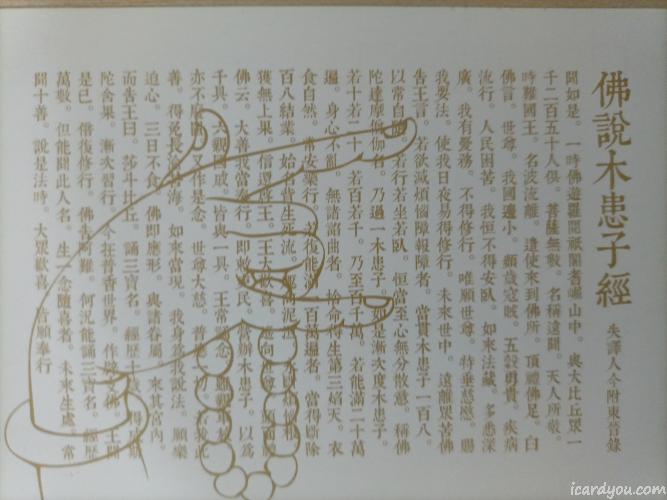 佛說木患子經 失譯人今附東晉錄
聞如是。一時佛遊羅閱祇闍耆崛山中。與大比丘眾一
千二百五十人俱。菩薩無數。名稱遠聞。天人所敬。
時難國王。名波流離。遣使來到佛所。頂禮佛足。白
佛言。世尊。我國邊小。頻歲寇賊。五穀勇貴。疾病
流行。人民困苦。我恒不得安臥。如來法藏。多悉深
廣。我有憂務。不得修行。唯願世尊。特垂慈愍。賜
我要法。使我日夜易得修行。未來世中。遠離眾苦佛
告王言。若欲滅煩惱障報障者。當貫木患子一百八。
以常自隨。若行若坐若臥。恒當至心無分散意。稱佛
陀達摩僧伽名。乃過一木患子。如是漸次度木患子。
若十若二十。若百若千。乃至百千萬。若能滿二十萬
遍。身心不亂。無諸諂曲者。捨命得生第三焰天。衣
食自然。常安樂行。若復能滿一百萬遍者。當得斷除
百八結業。始名背生死流。趣向泥洹。永斷煩惱根。
獲無上果。信還啟王。王大歡喜。遙向世尊。頭面禮
佛云。大善我當奉行。即敕吏民。營辦木患子。以為
千具。六親國戚。皆與一具。王常誦念。雖親軍旅。
亦不廢置。又作是念。世尊大慈。普應一切。若我此
善。得免長淪苦海。如來當現。我身為我說法。願樂
迫心。三日不食。佛即應形。與諸眷屬。來其宮內。
而告王曰。莎斗比丘。誦三寶名。經歷十歲。得成斯
陀含果。漸次習行。今在普香世界。作辟支佛。王聞
是已。倍復修行。佛告阿難。何況能誦三寶名。經歷
萬數。但能聞此人名。生一念隨喜者。未來生處。常
聞十善。說是法時。大眾歡喜。皆願奉行
icardyou.com